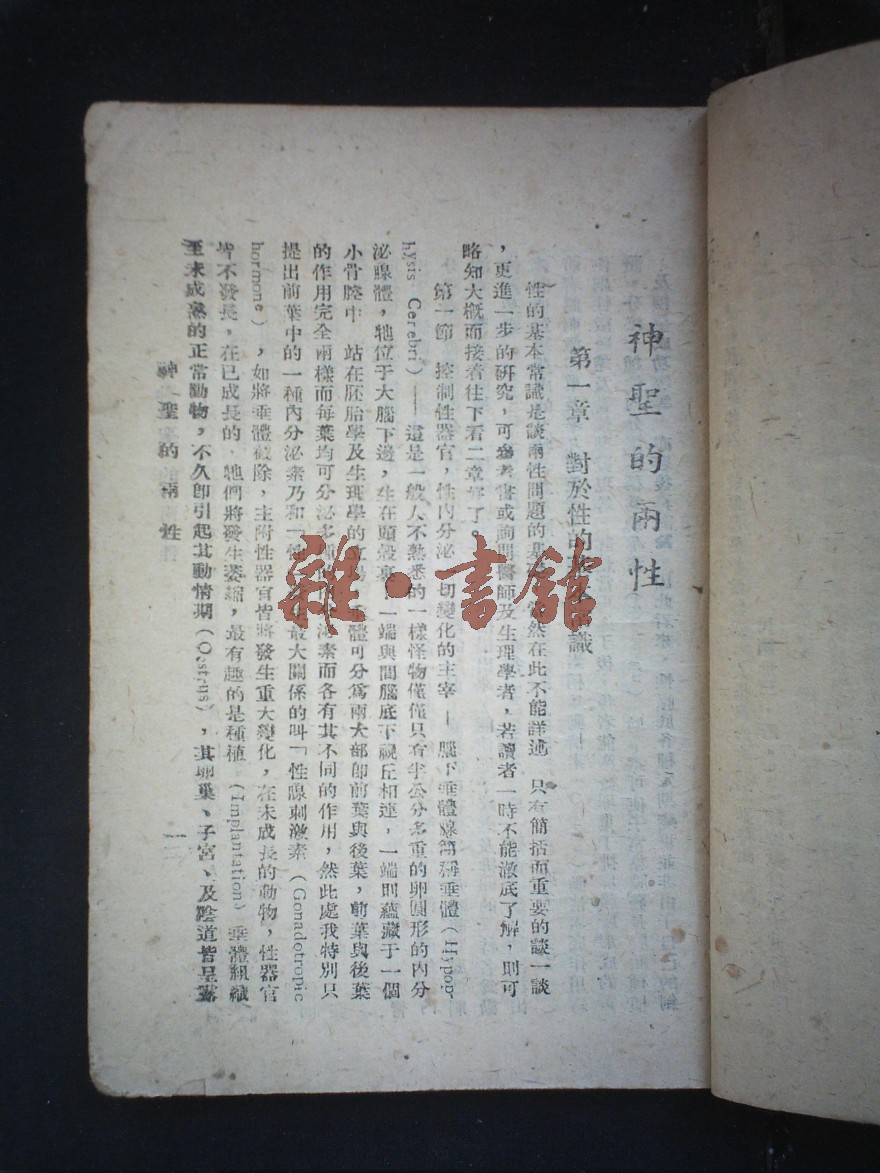 神聖的兩性
第一章 對於性的基本常識
性的基本常識是談兩性問題的基礎，當然在此不能詳述 只有簡括而重要的談一談
，更進一步的研究，可參考書或詢問醫師及生理學者，若讀者一時不能澈底了解，則可
略知大概而接着往下看二章好了。
第一節 控制性器官，性內分泌一切變化的主宰—腦下垂體線簡稱垂體（Hypop-
hysis Cerebri）——這是一般人不熟悉的一樣怪物僅僅只有半公分多重的卵圓形的內分
泌腺體，牠位于大腦下邊，生在頭殼裏，一端與間腦底下視丘相連，一端則蘊藏于一個
小骨腔中 站在胚胎學及生理學的立場 垂體可分為兩大部即前葉與後葉，前葉與後葉
的作用完全兩樣而每葉均可分泌多種的 泌素而各有其不同的作用，然此處我特別只
提出前葉中的一種內分泌素乃和「性」 最大關係的叫「性腺刺激素（Gonadotropic
hormone），如將垂體截除，主附性器官皆將發生重大變化，在未成長的動物，性器官
皆不發長，在已成長的 牠們將發生萎縮，最有趣的是種植 （Implantation）垂體組織
至未成熟的正常動物，不久即引起其動情期（Oestrus），其卵巢、子宮、及陰道皆呈露
神聖的兩性
一
雜·書館